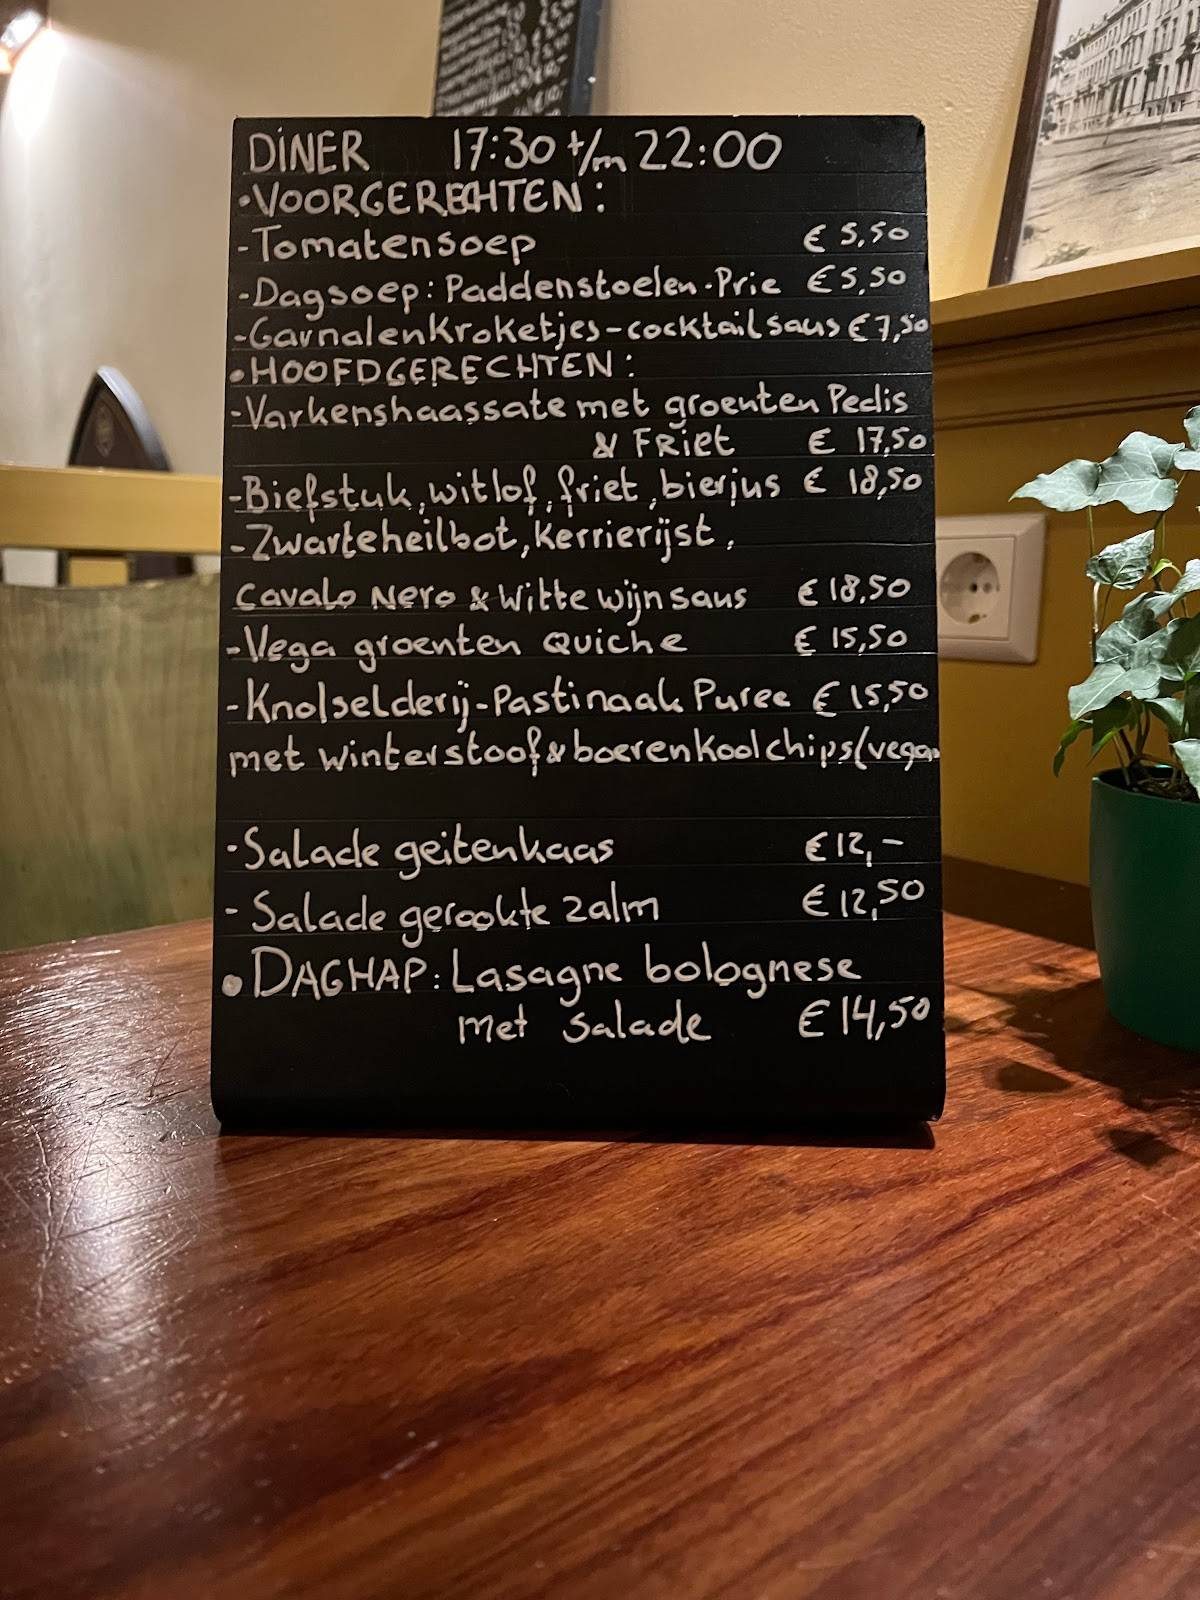 DINER 17:30 t/m 22:00
•VOORGERECHTEN:
-Tomatensoep € 5,50
-Dagsoep: Paddenstoelen-Prie €5,50
-Garnalenkroketjes-cocktailsaus €7,50
•HOOFDGERECHTEN:
-Varkenshaassate met groenten Pedis
& FRiet € 17,50
-Biefstuk, witlof, friet, bierjus € 18,50
-Zwarteheilbot, Kerrierijst,
cavalo Nero & Witte wijnsaus € 18,50
-Vega groenten Quiche € 15,50
-Knolselderij-Pastinaak Puree € 15,50
met winterstoof & boerenkoolchips (vegan
-Salade geitenkaas € 12,-
-Salade gerookte zalm € 12,50
•DAGHAP: Lasagne bolognese
met salade € 14,50